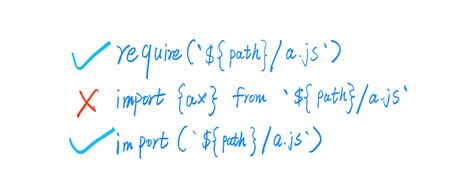 require(`${path}/a.js`)
import {ax} from `${path}/a.js`
import(`${path}/a.js`)